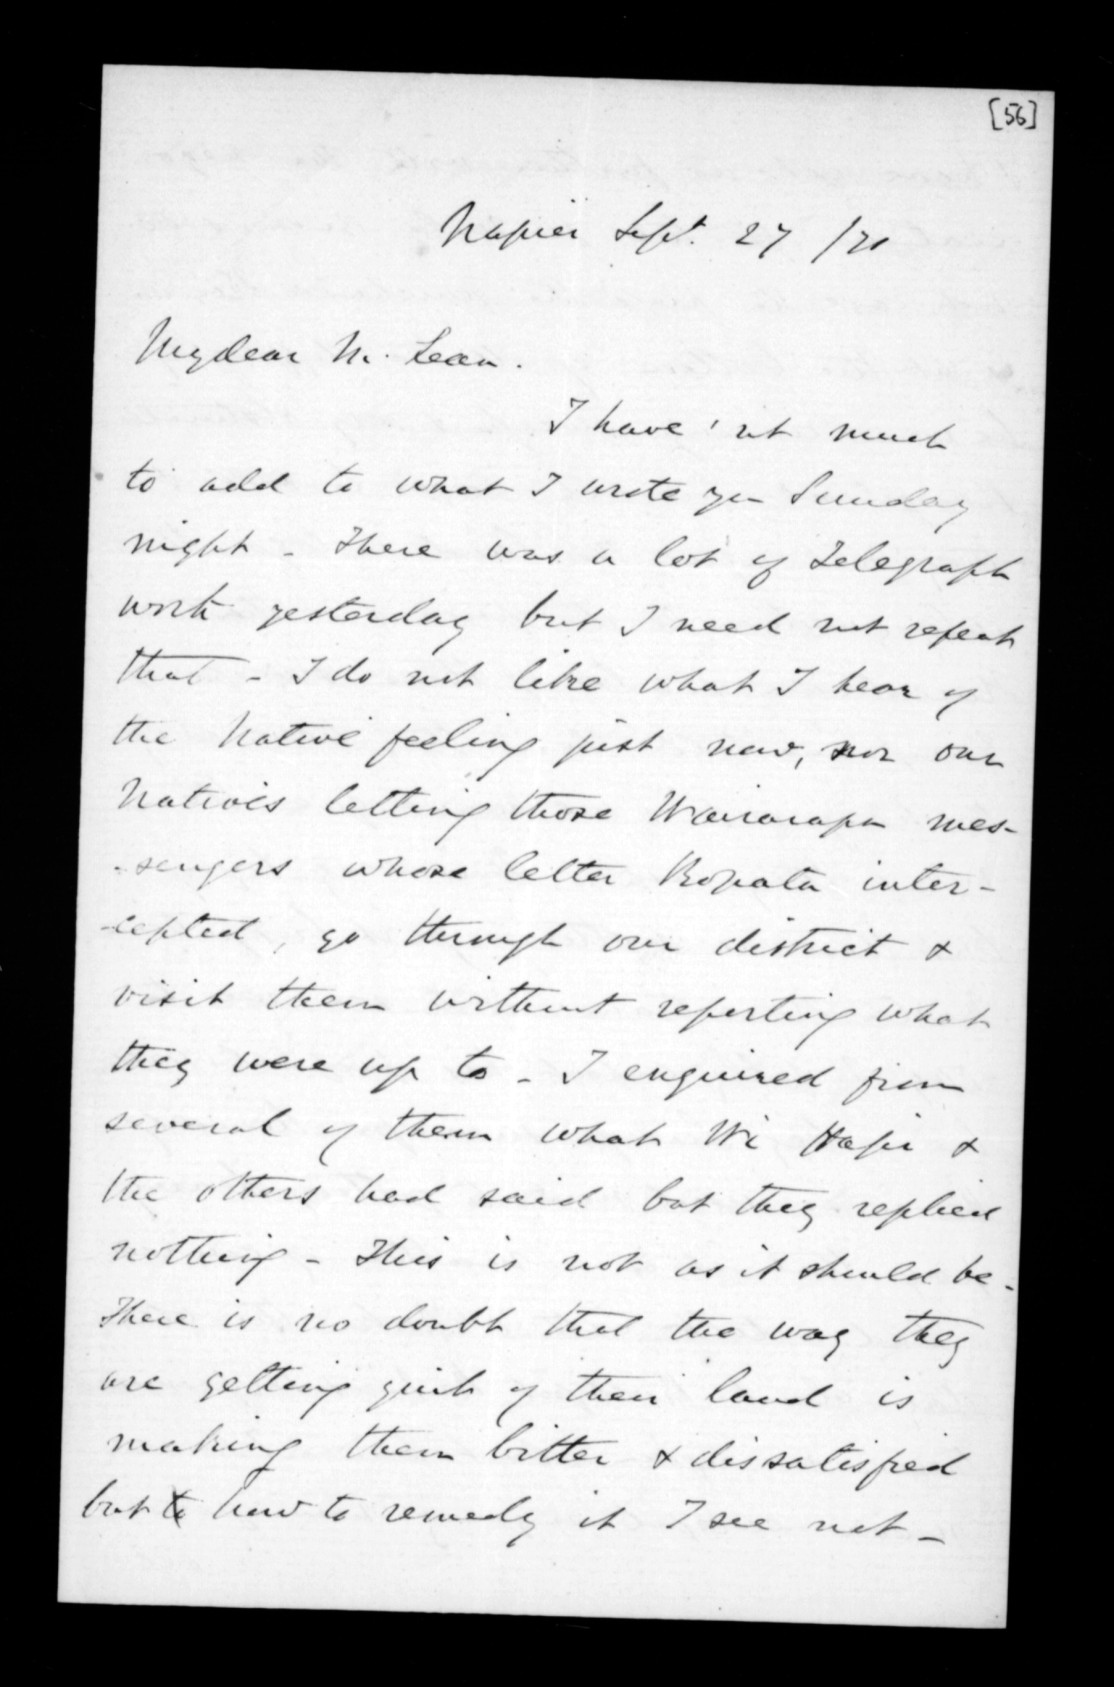 [56]
Napier Sept. 27 /70
My dear McLean.
I have'nt much
to add to what I wrote you Sunday
night - There was a lot of Telegraph
work yesterday but I need not repeat
that - I do not like what I hear of
the Native feeling just now, nor our
Natives letting those Wairarapa mes-
-sengers whose letter Ropata inter-
-cepted, go through our district &
visit them without reporting what
they were up to - I enquired from
several of them what Wi Hapi &
the others had said but they replied
nothing - This is not as it should be -
There is no doubt that the way they
are getting quit of their land is
making them bitter & dissatisfied
but to how to remedy it I see not -